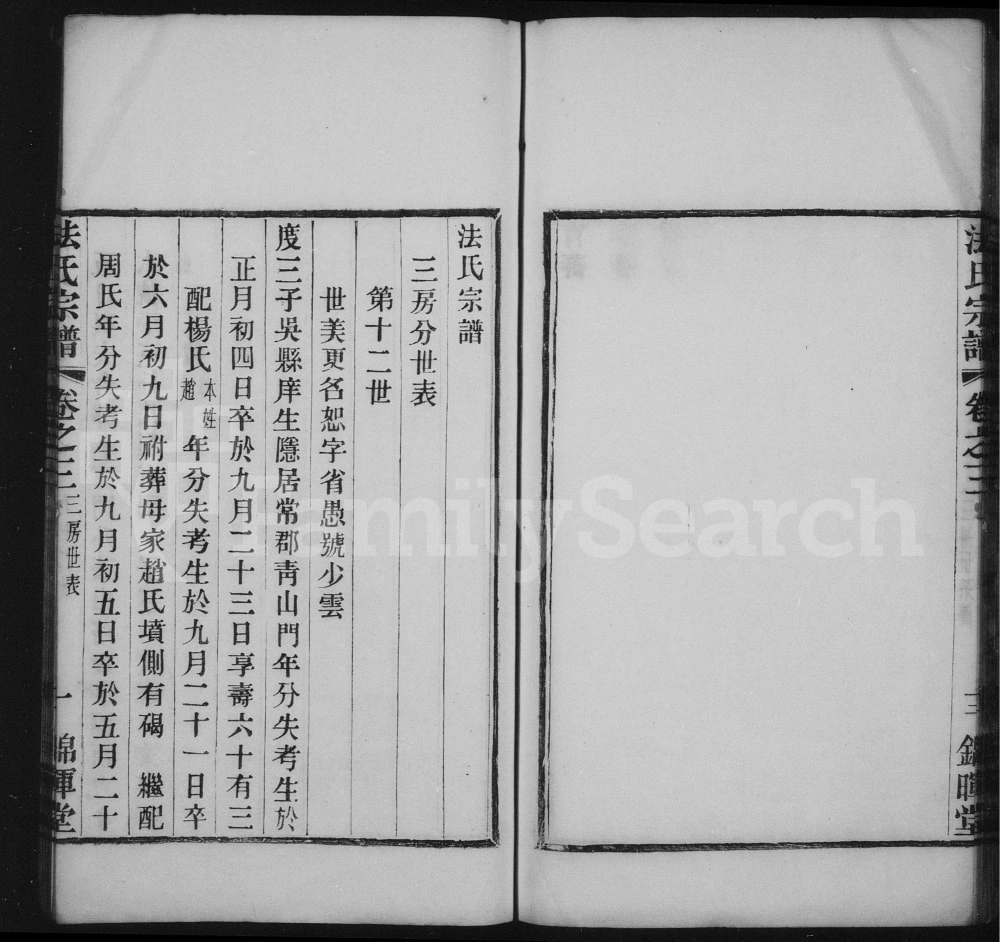 法氏宗譜
卷之三
三
錦暉堂
法氏宗譜
三房分世表
第十二世
世美更名恕字省愚號少雲
度三子吳縣庠生隱居常郡靑山門年分失考生於
正月初四日卒於九月二十三日享壽六十有三
配楊氏本姓趙年分失考生於九月二十一日卒
於六月初九日祔葬母家趙氏墳側有碣 繼配
周氏年分失考生於九月初五日卒於五月二十
法氏宗譜
卷之三
三房世表
一
錦暉堂
FamilySearch